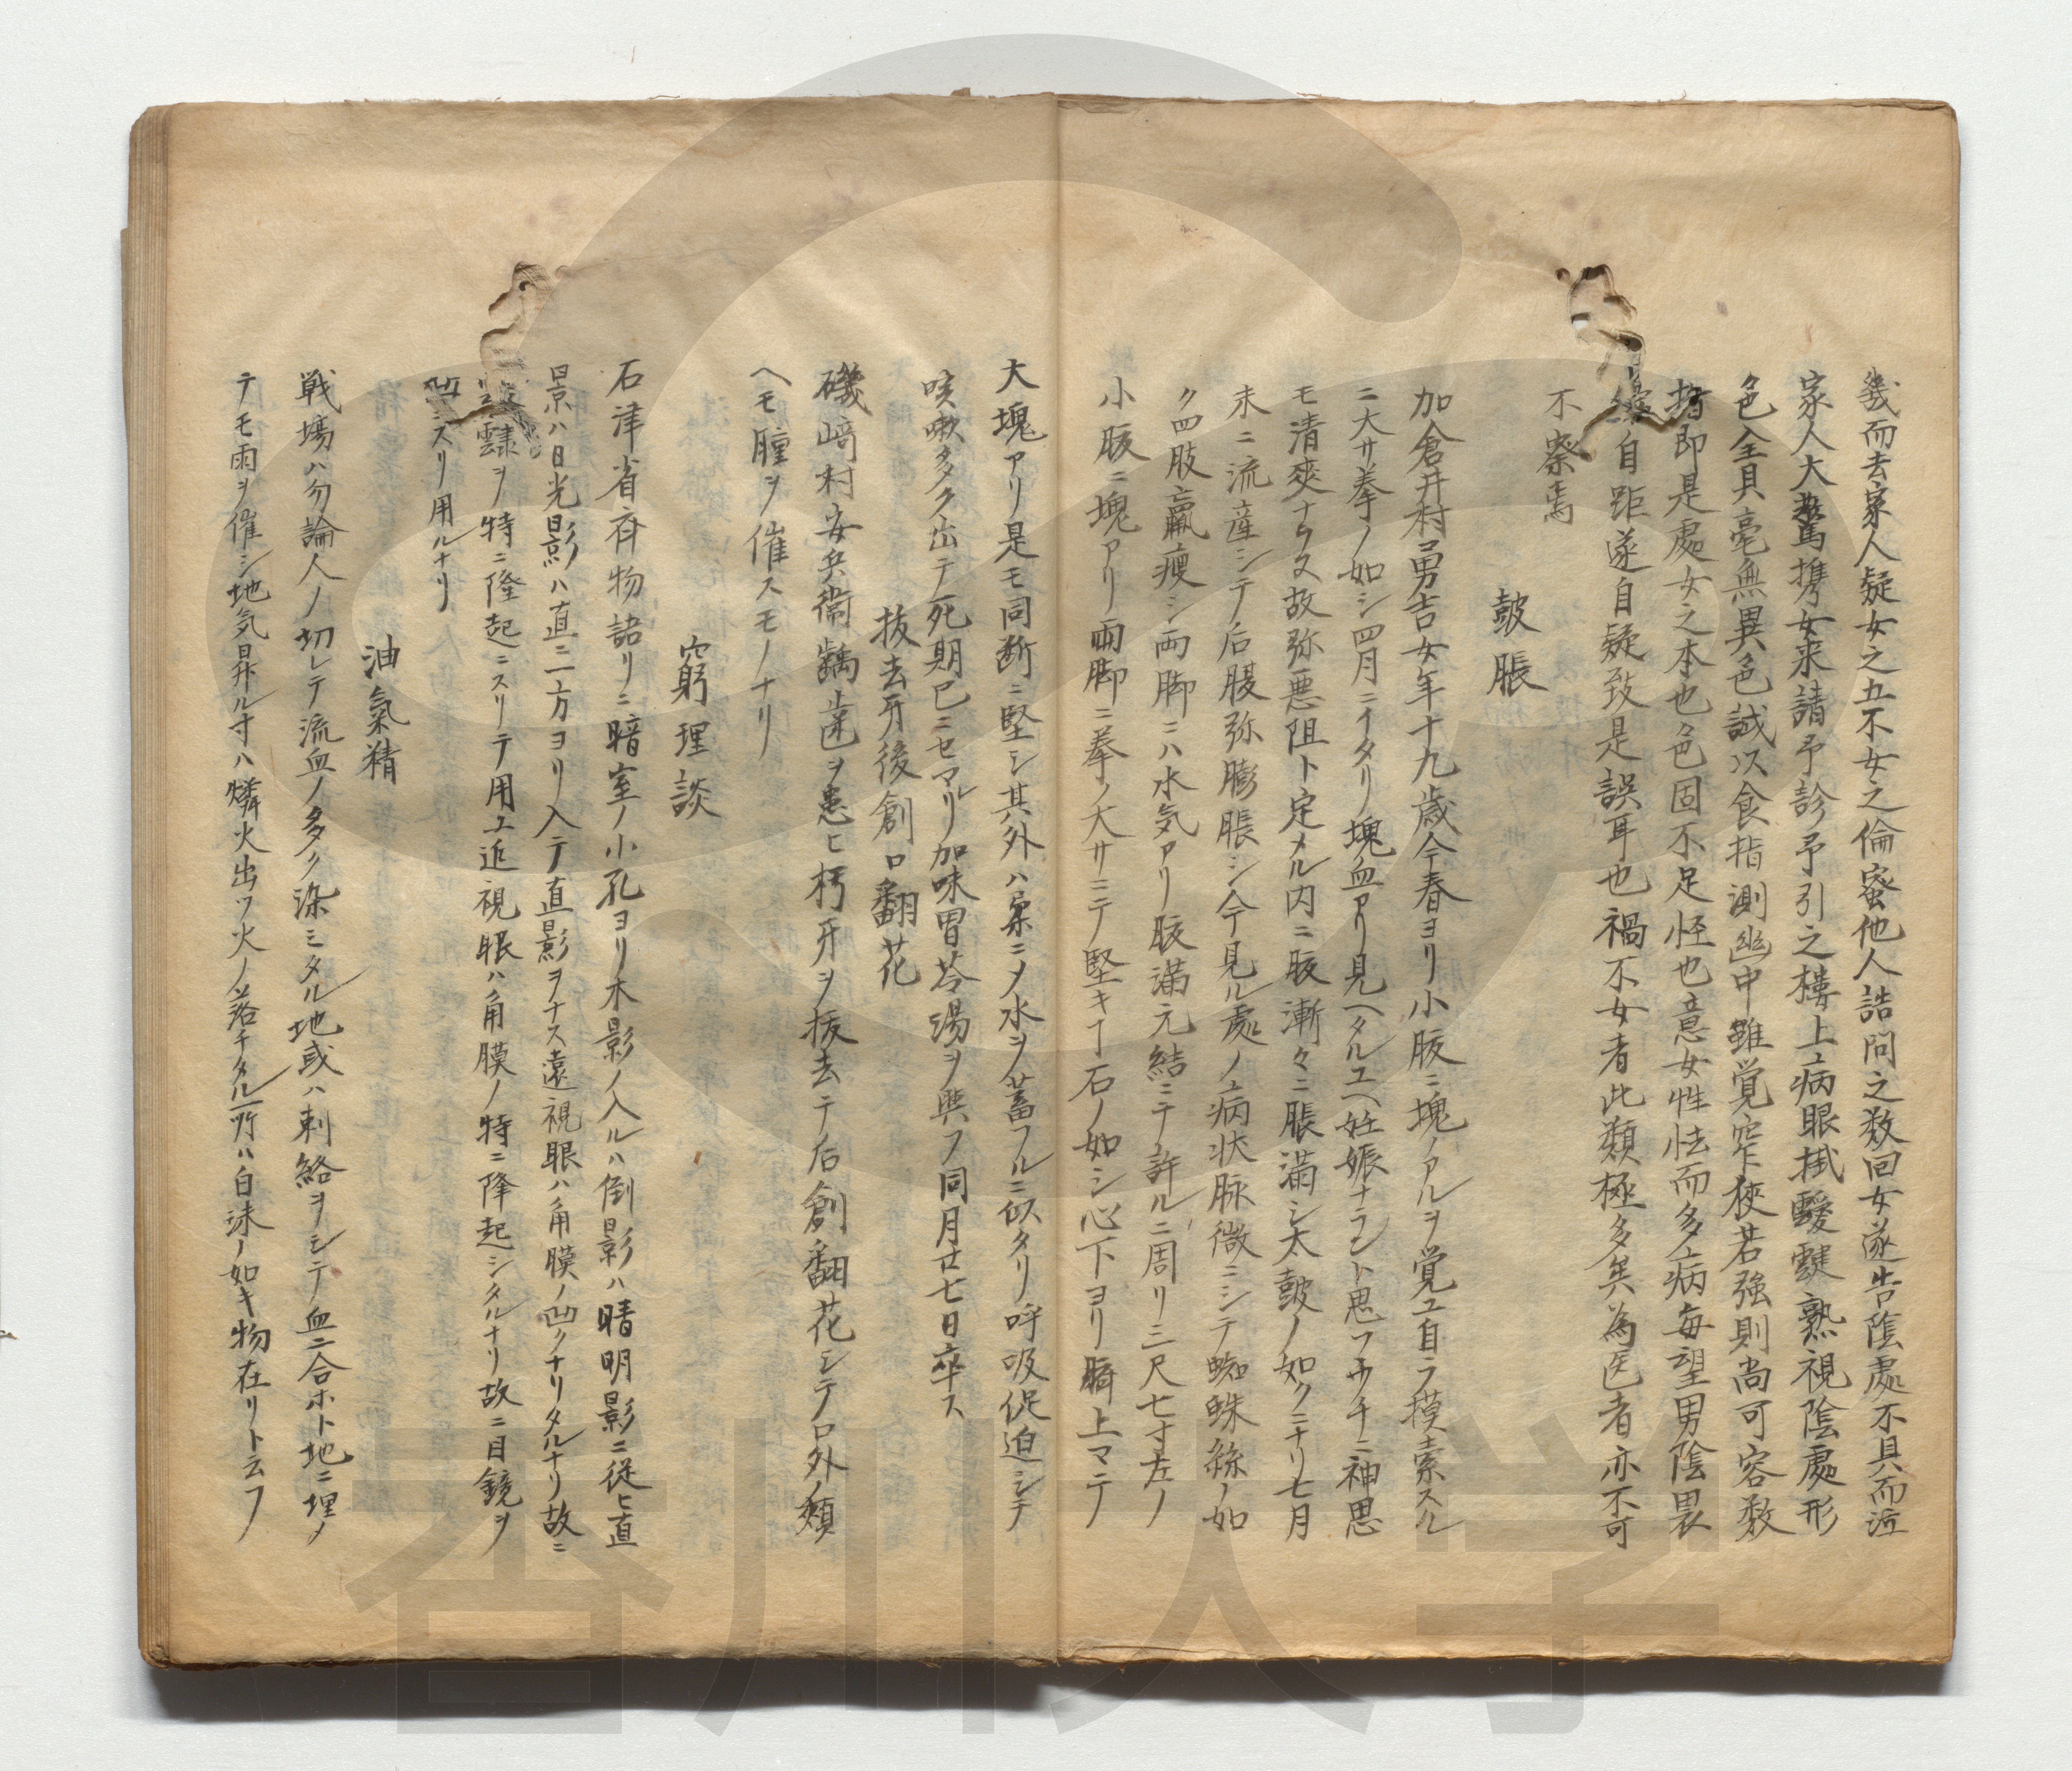 幾而去家人疑女之五不女之倫蜜他人詰問之数回女遂告陰處不具而泣
家人大驚携女来請予診予引之楼上病眼掛靉靆熟視陰處形
色全具毫無異色誠以食指測幽中雖覚窄狹若強則尚可容数
指即是處女之本也色固不足怪也意女性怯而多病毎望男陰畏
縮自距遂自疑致是誤耳也禍不女者此類極多矣為医者亦不可
不察焉
皷脹
加倉井村勇吉女年十九歳今春ヨリ小腹ニ塊ノアルヲ覚ユ自ラ摸索スル
ニ大サ拳ノ如シ四月ニイタリ塊血アリ見ヘタルユヘ妊娠ナラント思フウチニ神思
モ清爽ナラス故弥悪阻ト定メル内ニ腹漸々ニ脹満シ太皷ノ如クニナリ七月
末ニ流産シテ后腹弥膨脹シ今見ル處ノ病状脉微ニシテ蜘蛛絲ノ如
ク四肢羸痩シ両脚ニハ水気アリ腹満元結ニテ許ルニ周リ三尺七寸左ノ
小腹ニ塊アリ両脚ニ拳ノ大サニテ堅キ𪜈石ノ如シ心下ヨリ臍上マテ
大塊アリ是モ同断ニ堅シ其外ハ嚢ニ〆水ヲ蓄フルニ似タリ呼吸促迫シテ
咳嗽多ク出テ死期已ニセマルリ加味胃苓湯ヲ與フ同月廿七日卒ス
抜去牙後創口翻花
磯﨑村安兵衞齲歯ヲ患ヒ朽牙ヲ抜去テ后創翻花シテ口外ノ頬
ヘモ腫ヲ催スモノナリ
窮理談
石津省斉物語リニ暗室ノ小孔ヨリ木影ノ入ルハ倒影ハ晴明影ニ従ヒ直
景ハ日光影ハ直ニ一方ヨリ入テ直影ヲナス遠視眼ハ角膜ノ凹クナリタルナリ故ニ
靆ヲ特ニ隆起ニスリテ用ユ近視眼ハ角膜ノ特ニ隆起シタルナリ故ニ目鏡ヲ
凹ニスリ用ルナリ
油氣精
戦場ハ勿論人ノ切レテ流血ノ多ク染ミタル地或ハ刺絡ヲシテ血二合ホト地ニ埋メ
テモ雨ヲ催シ地気昇ル寸ハ燐火出ツ火ノ落チタル所ハ白沫ノ如キ物在リト云フ